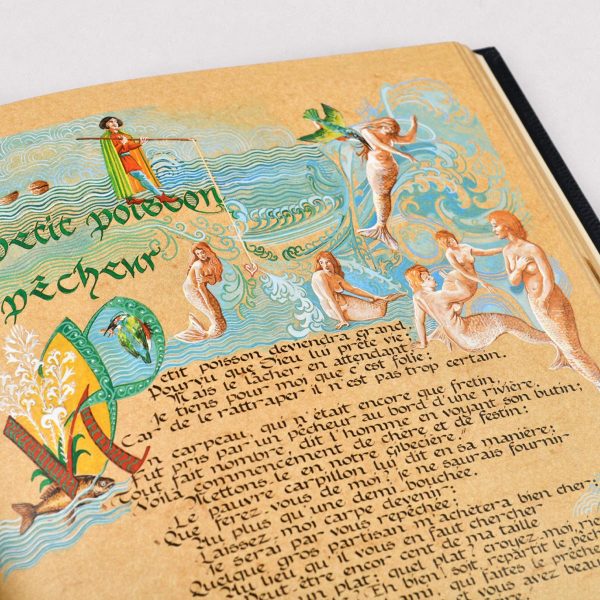 petit poisson
pêcheur
Petit poisson deviendra grand
Pourvu que Dieu lui prête vie;
Mais le lâcher en attendant,
Je tiens pour moi que c'est folie:
Car de le rattraper il n'est pas trop certain.
carpeau, qui n'était encore que fretin,
Fut pris par un pêcheur au bord d'une rivière.
Tout fait nombre, dit l'homme en voyant son butin;
Voilà commencement de chère et de festin:
Mettons-le en notre gibecière."
Le pauvre carpillon lui dit en sa manière:
"Que ferez vous de moi? je ne saurais fournir
Au plus qu'une demi-bouchée.
Laissez moi carpe devenir:
Je serai par vous repêchée;
Quelque gros partisan m'achètera bien cher:
Au lieu qu'il vous en faut chercher
Peut être encor cent de ma taille
un plat: quel plat? croyez moi,
Eh bien! soit, repartit le
ami, qui faites le
et vous avez beau